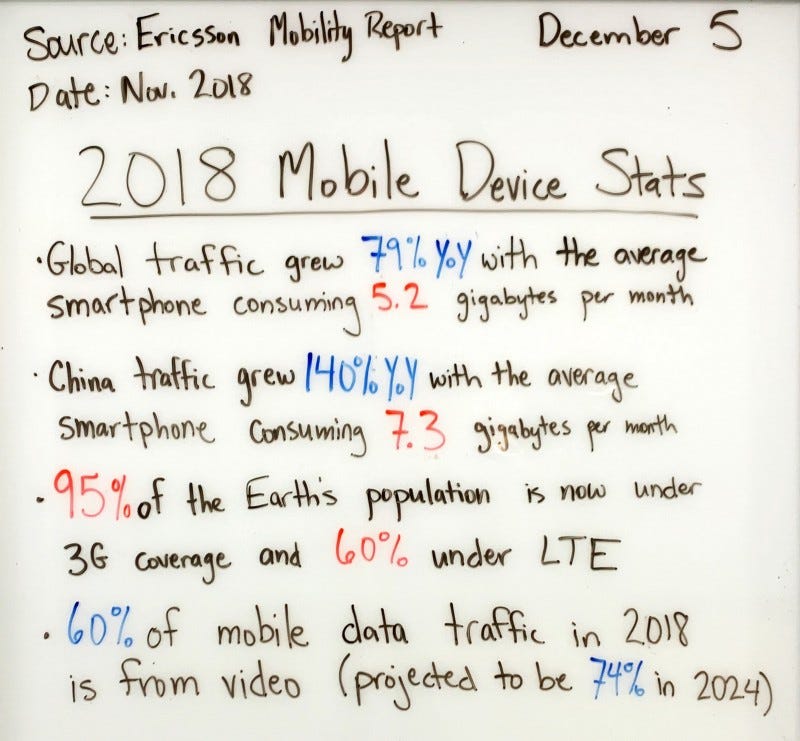 Source: Ericsson Mobility Report December 5
Date: Nov. 2018
2018 Mobile Device Stats
• Global traffic grew 79% YoY with the average
smartphone consuming 5.2 gigabytes per month
• China traffic grew 140% YoY with the average
smartphone consuming 7.3 gigabytes per month
• 95% of the Earth's population is now under
3G coverage and 60% under LTE
• 60% of mobile data traffic in 2018
is from video (projected to be 74% in 2024)